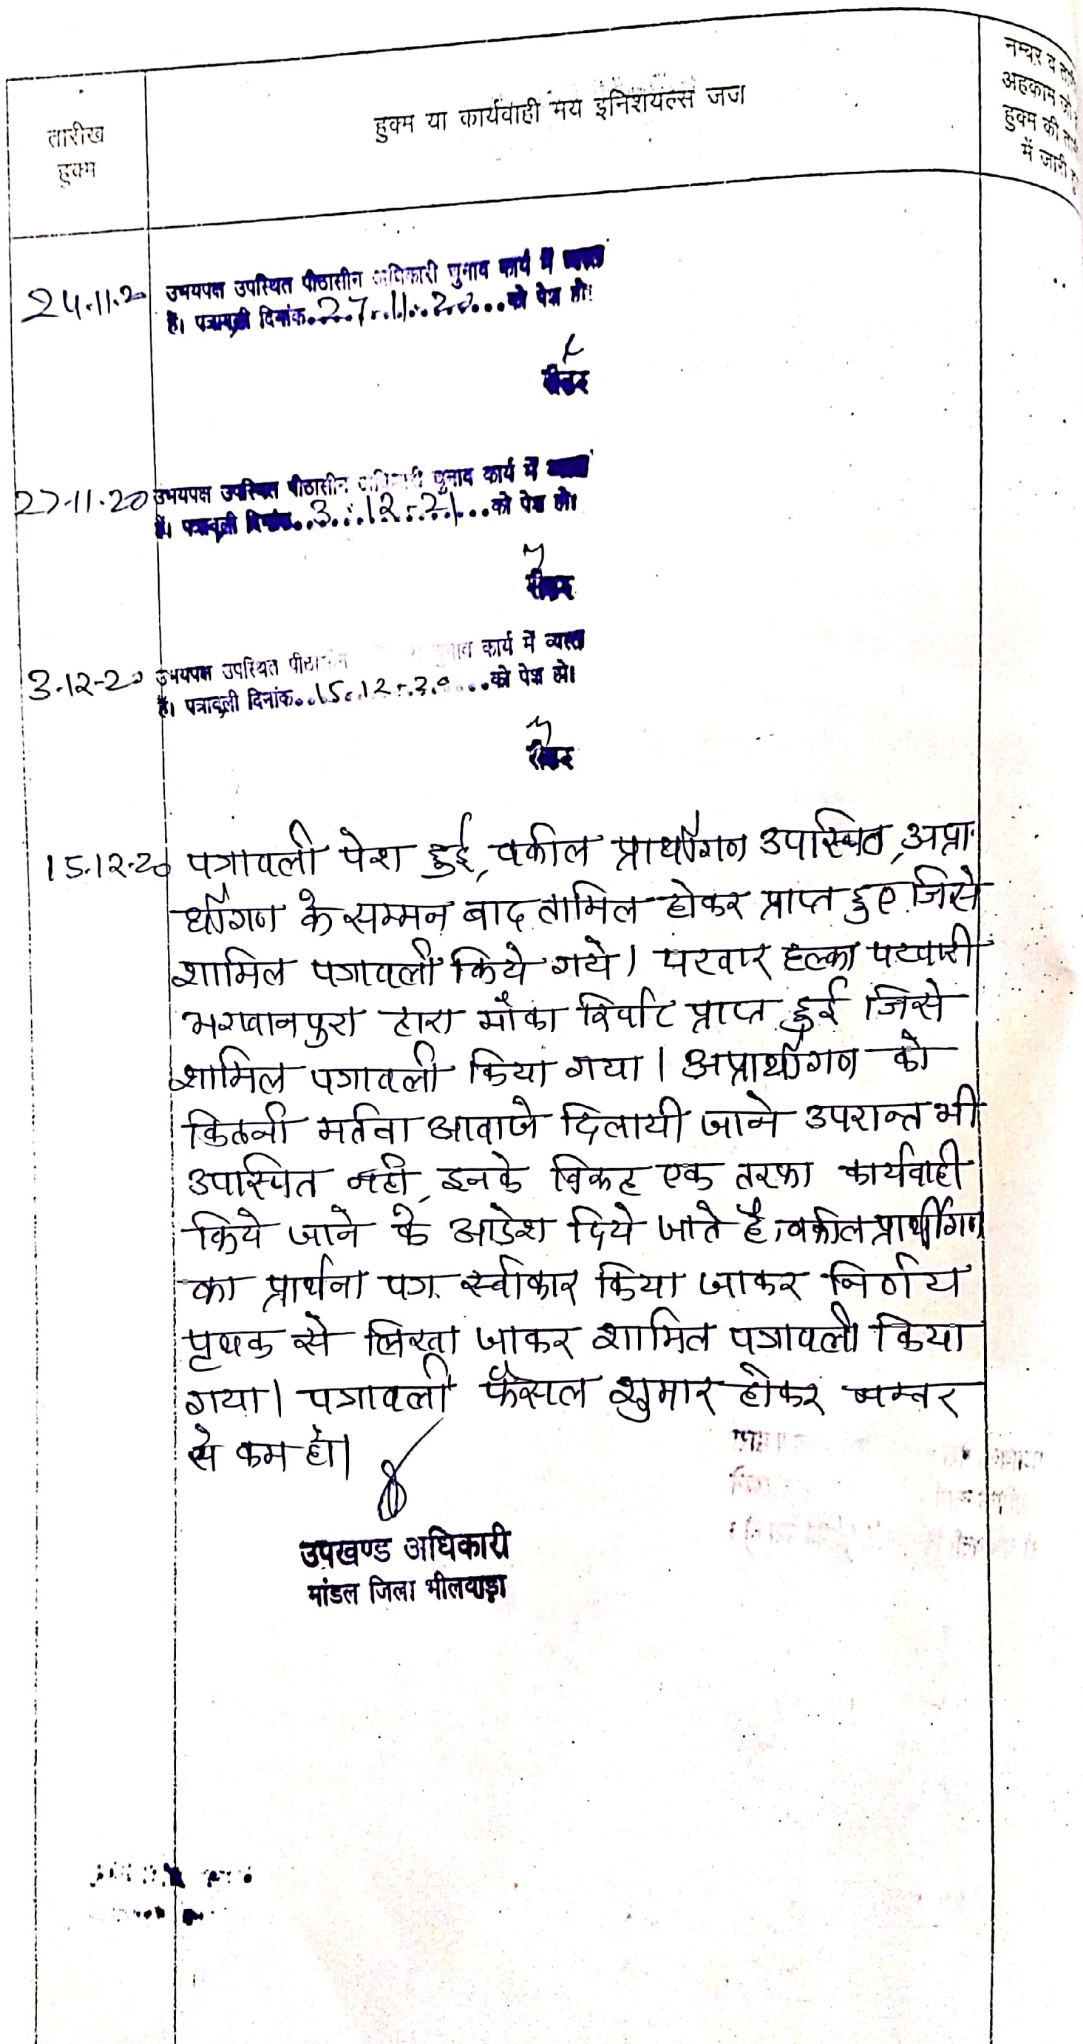 तारीख
हुक्म
हुक्म या कार्यवाही मय इनिशयल्स जज
नम्बर व
अहकाम जो
हुक्म की
में जारी
24.11.20
उभयपक्ष उपस्थित पीठासीन अधिकारी चुनाव कार्य में व्यस्त
है। पत्रावली दिनांक..27.11.20...को पेश हो।
रीडर
27.11.20
उभयपक्ष उपस्थित पीठासीन अधिकारी चुनाव कार्य में व्यस्त
है। पत्रावली दिनांक..3.12.21...को पेश हो।
रीडर
3.12-20
उभयपक्ष उपस्थित पीठासीन चुनाव कार्य में व्यस्त
है। पत्रावली दिनांक..15.12.20...को पेश हो।
रीडर
15.12.20
पत्रावली पेश हुई, वकील प्रार्थीगण उपस्थित, अप्रा-
र्थीगण के सम्मन बाद तामिल होकर प्राप्त हुए जिसे
शामिल पत्रावली किये गये। पटवार हल्का पटवारी
भगवानपुरा द्वारा मौका रिर्पोट प्राप्त हुई जिसे
शामिल पत्रावली किया गया। अप्रार्थीगण को
कितनी मर्तबा आवाजे दिलायी जाने उपरान्त भी
उपस्थित नही, इनके विरूद्ध एक तरफा कार्यवाही
किये जाने के आदेश दिये जाते है। वकील प्रार्थीगण
का प्रार्थना पत्र स्वीकार किया जाकर निर्णय
पृथक से लिखा जाकर शामिल पत्रावली किया
गया। पत्रावली फैसल शुमार होकर नम्बर
से कम हो।
उपखण्ड अधिकारी
मांडल जिला भीलवाड़ा